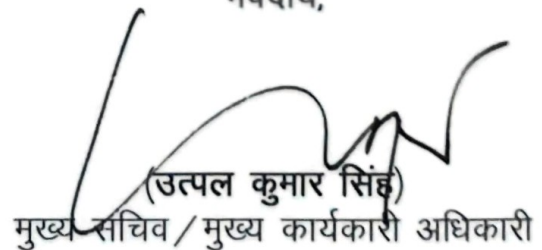 (उत्पल कुमार सिंह)
मुख्य सचिव / मुख्य कार्यकारी अधिकारी